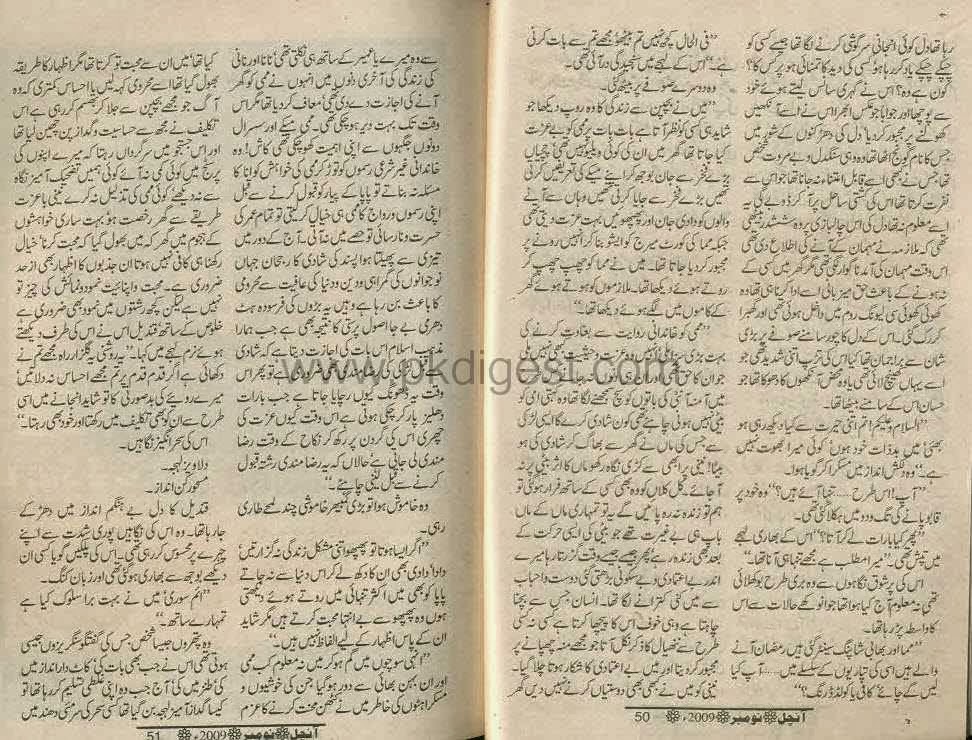 رہا تھا دل کوئی انجانی سرگوشی کرنے لگا تھا جیسے کسی کو
چپکے چپکے یاد کر رہا ہو کسی کی دید کا تمنائی ہو پر کس کا؟
کون ہے وہ؟ اس نے گہری سانس لیتے ہوئے خود
سے پوچھا اور جواباً جو عکس ابھرا اس نے اسے آنکھیں
کھولنے پر مجبور کر دیا۔ دل کی دھڑکنوں کے شور میں
جس کا نام گونج اٹھا تھا وہ وہی سنگدل و بے مروت شخص
تھا جس نے کبھی اسے قابل اعتناء نہ جانا تھا جو اس سے
نفرت کرتا تھا
اسے معلوم نہ تھا دل کی اس چالبازی پر وہ ششدر بیٹھی
تھی کہ ملازمہ نے مہمان کے آنے کی اطلاع دی تھی
اس وقت مہمان کی آمد ناگوار لگی تھی مگر گھر میں کسی کے
نہ ہونے کے باعث حق میزبانی اسے ادا کرنا ہی تھا وہ
کھوئی کھوئی سی لیونگ روم میں داخل ہوئی تھی اور ٹھہرا
کر رک گئی۔ اس کے دل کا چور سامنے صوفے پر بڑی
شان سے براجمان تھا کیا اس کی تڑپ اتنی شدید تھی جو
اسے یہاں کھینچ لائی تھی یا وہ محض آنکھوں کا دھوکا تھا جو
حسان اس کے سامنے بیٹھا تھا۔
”السلام علیکم! تم اتنی حیرت سے کیا دیکھ رہی ہو
بھئی میں بذات خود ہوں کوئی میرا بھوت نہیں
ہے۔“ وہ دلکش انداز میں مسکرا کر گویا ہوا۔
”آپ! اس طرح..... تنہا آئے ہیں؟“ وہ خود پر
قابو پانے کی تگ و دو میں ہکلا گئی تھی۔
”پھر کیا بارات لے کر آتا؟“ اس کے بھاری لہجے
میں تپش تھی۔ ”میرا مطلب ہے مجھے تنہا ہی آنا تھا۔“
اس کی پرشوق نگاہوں سے وہ بری طرح بوکھلائی
تھی نہ معلوم آج کیا ہوا تھا جو انوکھے حالات سے اس
کا واسطہ پڑ رہا تھا۔
”مما اور بھائی شاپنگ سینٹر گئی ہیں رمضان آنے
والے ہیں اسی کی تیاریوں کے سلسلے میں..... آپ کیا
لیں گے چائے کافی یا کولڈ ڈرنک؟“
”فی الحال کچھ نہیں تم بیٹھو مجھے تم سے بات کرنی
ہے۔“ اس کے لہجے میں سنجیدگی در آئی تھی۔
وہ دوسرے صوفے پر بیٹھ گئی۔
”میں نے بچپن سے زندگی کا وہ روپ دیکھا جو
شاید ہی کسی کو نظر آتا ہے بات بات پر ممی کو بے عزت
کیا جاتا تھا گھر میں ان کی کوئی ویلیو نہیں تھی چچیاں
بڑے فخر سے جان بوجھ کر اپنے میکے کی تعریفیں کرتی
تھیں بڑے فخر سے جایا کرتی تھیں وہاں سے آنے
والوں کو دادی جان اور پھپھو میں بہت عزت دیتی تھی
جبکہ مما کی کورٹ میرج کو ایشو بنا کر انہیں رونے پر
مجبور کر دیا جاتا تھا۔ میں نے مما کو چھپ چھپ کر
روتے ہوئے دیکھا تھا۔ ملازموں کو ہوتے ہوئے گھر
کے کاموں میں لگے ہوئے دیکھا تھا۔“
”ممی کو خاندانی روایت سے بغاوت کرنے کی
بہت بڑی سزا ملی انہیں وہ عزت و حیثیت کبھی نہیں ملی
جو ان کا حق تھی
میں آمنہ آنٹی کی باتوں کو سچ سمجھنے لگا تھا وہ کہتی تھیں ممی کو
بیٹی نہیں ہونی چاہئے تھی کون شادی کرے گا ایسی لڑکی
سے جس کی ماں نے گھر سے بھاگ کر شادی کی ہو
بیٹا! عینی پر ابھی سے کڑی نگاہ رکھو ماں کا اثر بیٹی پر نہ
آ جائے۔ کل کلاں کو وہ بھی کسی کے ساتھ فرار ہو گئی تو
ہم تو زندہ نہ رہ پائیں گے یہ تو تمہاری ماں کے ماں
باپ ہی بے غیرت تھے جو بیٹی کی ایسی حرکت کے
بعد بھی زندہ رہے پھر جیسے جیسے وقت گزرتا رہا میرے
اندر بے اعتمادی و بے سکونی بڑھتی گئی دوست و احباب
سے میں کنی کترانے لگا تھا۔ انسان جس سے بچنا
چاہتا ہے وہی خوف اس کا پیچھا کرتا ہے کسی نہ کسی
طرح سے ننھیال کا ذکر نکل آتا جو مجھے منہ چھپانے پر
مجبور کر دیتا اور میں بے اعتمادی کا شکار ہوتا چلا گیا۔
عینی کو میں نے کبھی بھی دوستیاں کرنے نہیں دیں گھر
آنچل نومبر ۲۰۰۹ء 50
سے وہ میرے یا عمیر کے ساتھ ہی نکلتی تھی نانا اور نانی
کی زندگی کی آخری دنوں میں انہوں نے ممی کو گھر
آنے کی اجازت دے دی تھی معاف کر دیا تھا مگر اس
وقت تک بہت دیر ہو چکی تھی۔ ممی میکے اور سسرال
دونوں جگہوں سے اپنی اہمیت کھو چکی تھی کاش! وہ
خاندانی غیر شرعی رسموں کو توڑ کر ممی کی خواہش کو انا کا
مسئلہ نہ بناتے تو پاپا کے پیار کو قبول کرنے سے قبل
اپنی رسموں و رواج کا ممی ہی خیال کر لیتی تو تمام عمر کی
حسرت و نارسائی تو حصے میں نہ آتی۔ آج کے دور میں
تیزی سے پھیلتا ہوا پسند کی شادی کا رجحان جہاں
نوجوانوں کی گمراہی و دین و دنیا کی عافیت سے محرومی
کا باعث بن رہا ہے وہیں یہ بڑوں کی فرسودہ ہٹ
دھرمی بے جا اصول پرستی کا نتیجہ بھی ہے جب ہمارا
مذہب اسلام اس بات کی اجازت دیتا ہے کہ شادی
سے قبل بیٹی کی رضا مندی ضروری ہے تو پھر اس
وقت یہ ڈھونگ کیوں رچایا جاتا ہے جب بارات
دہلیز پار کر چکی ہوتی ہے اس وقت کیوں عزت کی
چھری اس کی گردن پر رکھ کر نکاح کے وقت رضا
مندی لی جاتی ہے حالاں کہ یہ رضا مندی رشتہ قبول
کرنے سے قبل لینی چاہئے۔“
وہ خاموش ہوا تو بڑی گمبھیر خاموشی چند لمحے طاری
رہی۔
”اگر ایسا ہوتا تو پھپھو اتنی مشکل زندگی نہ گزارتیں
دادا، دادی بھی ان کا دکھ لے کر اس دنیا سے نہ جاتے
پاپا کو بھی میں اکثر تنہائی میں روتے ہوئے دیکھتی
ہوں وہ پھپھو سے بے انتہا محبت کرتے ہیں مگر شاید
ان کے پاس اظہار کے لیے الفاظ نہیں ہیں۔“
”انہی سوچوں میں گم ہو کر میں نہ معلوم کب ممی
اور ان بہن بھائی سے دور ہو گیا جن کی خوشیوں و
مسکراہٹوں کی خاطر میں نے کٹھن محنت کرنے کا عزم
کیا تھا میں ان سے محبت تو کرتا تھا مگر اظہار کا طریقہ
بھول گیا تھا اسے محرومی کہہ لیں یا احساس کمتری کہ وہ
آگ جو مجھے بچپن سے جلا کر بھسم کر رہی ہے اس
تکلیف نے مجھ سے حساسیت و گداز پن چھین لیا تھا
اور اس جستجو میں سرگرداں رہتا کہ میرے اپنوں کی
پرچ میں کوئی کمی نہ آئے کوئی ہمیں تضحیک آمیز نگاہ
سے نہ دیکھے کوئی ممی کی تذلیل نہ کرے عینی باعزت
طریقے سے گھر رخصت ہو بہت ساری خواہشوں
کے ہجوم میں گھر کہ میں بھول گیا کہ محبت کرنا خیال
رکھنا ہی کافی نہیں ہوتا ان جذبوں کا اظہار بھی از حد
ضروری ہے۔ محبت و اپنائیت نمود و نمائش کی چیز تو
نہیں ہے لیکن کچھ رشتوں میں نمود بھی ضروری ہے
خلوص کے ساتھ قندیل اس نے اس کی طرف دیکھتے
ہوئے نرم لہجے میں کہا۔ ”یہ روشنی یہ گلزار راہ مجھے تم نے
دکھائی ہے اگر قدم قدم پر تم مجھے احساس نہ دلاتیں
میرے رویے کی بدصورتی کا تو شاید انجانے میں اسی
طرح سے ان کو بھی تکلیف میں رکھتا اور خود بھی رہتا۔“
اس کی سحر انگیز نگاہیں۔
دلاویز لہجہ۔
مسحور کن انداز۔
قندیل کا دل بے ہنگم انداز میں دھڑکے
جا رہا تھا۔ وہ اس کی نگاہیں پوری شدت سے اپنے
چہرے پر محسوس کر رہی تھی۔ اس کی پلکیں گویا کسی ان
دیکھے بوجھ سے بھاری ہو گئی تھی اور زبان گنگ۔
”ائم سوری میں نے بہت برا سلوک کیا ہے
تمہارے ساتھ۔“
وہ پتھروں جیسا شخص، جس کی گفتگو سنگریزوں جیسی
ہوتی تھی اس نے جب بھی بات کی کاٹ دار انداز میں
کی طنز میں کی آج جب وہ اپنی غلطی تسلیم کر رہا تھا تو
کیسا گداز آمیز لہجہ بن گیا تھا کسی سحر کی سرمئی دھند میں
آنچل نومبر ۲۰۰۹ء 51
www.pkdigest.com